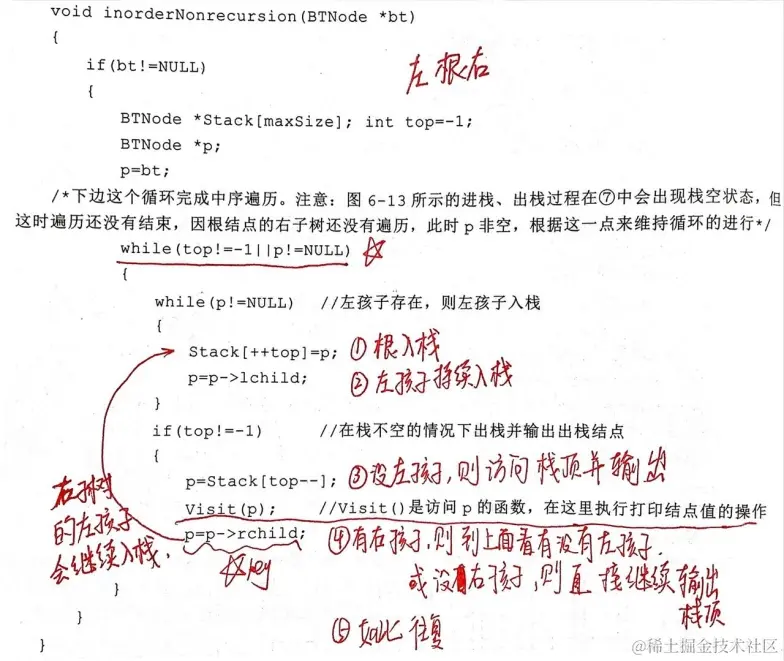 void inorderNonrecursion(BTNode *bt)
{
if(bt!=NULL)
左根右
{
BTNode *Stack[maxSize]; int top=-1;
BTNode *p;
p=bt;
/*下边这个循环完成中序遍历。注意：图 6-13 所示的进栈、出栈过程在⑦中会出现栈空状态，但
这时遍历还没有结束，因根结点的右子树还没有遍历，此时 p 非空，根据这一点来维持循环的进行*/
while(top!=-1||p!=NULL)
{
while(p!=NULL) //左孩子存在，则左孩子入栈
{
Stack[++top]=p; ①根入栈
p=p->lchild; ②左孩子持续入栈
}
if(top!=-1) //在栈不空的情况下出栈并输出出栈结点
{
p=Stack[top--]; ③没左孩子,则访问栈顶并输出
Visit(p); //Visit()是访问 p 的函数，在这里执行打印结点值的操作
p=p->rchild; ④有右孩子,则到上面看有没有左孩子.
右子树
的左孩子
会继续入栈.
key
或没右孩子,则直接继续输出
栈顶
}
}
⑤如此往复
}
@稀土掘金技术社区